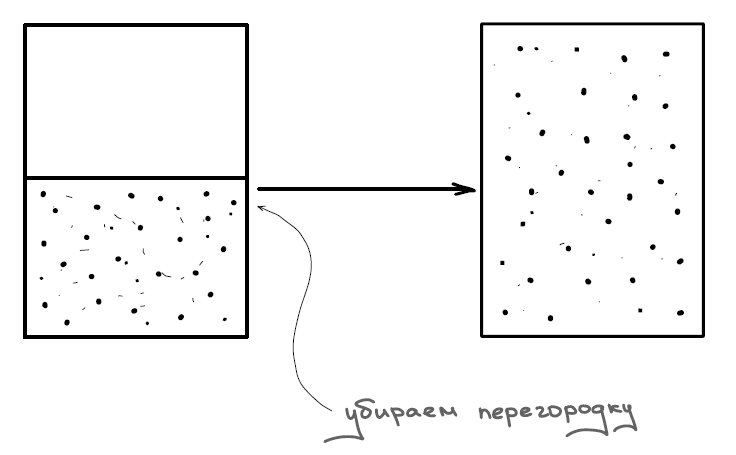 убираем перегородку